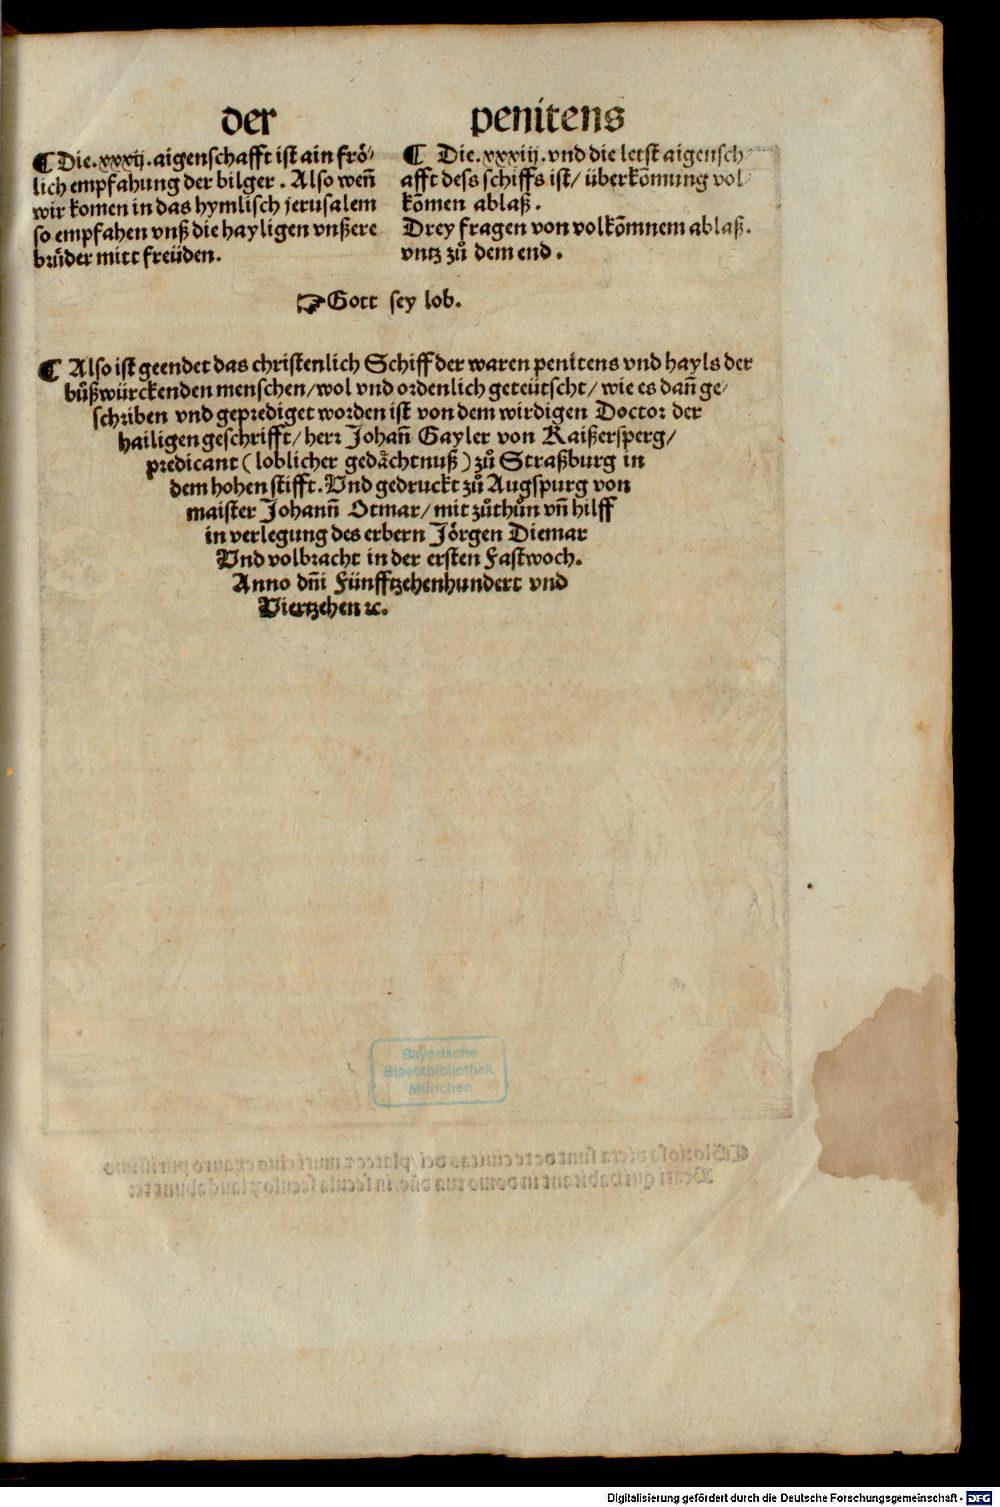 der penitens
¶ Die .xxxij. aigenschafft ist ain frö⸗
lich empfahung der bilger . Also weñ
wir komen in das hymlisch jerusalem
so empfahen vnß die hayligen vnßere
brůder mitt freüden.
¶ Die .xxxiij. vnd die letst aigensch⸗
afft dess schiffs ist/ überkōmung vol⸗
kōmen ablaß .
Drey fragen von volkōmnem ablaß.
vntz zů dem end .
☞ Gott sey lob.
¶ Also ist geendet das christenlich Schiff der waren penitens vnd hayls der
bůßwürckenden menschen/ wol vnd ordenlich geteütscht/ wie es dañ ge/
schriben vnd geprediget worden ist von dem wirdigen Doctor der
hailigen geschrifft/ herr Johañ Gayler von Kaißersperg/
predicant ( loblicher gedächtnuß ) zů Straßburg in
dem hohen stifft. Vnd gedruckt zů Augspurg von
maister Johanñ Otmar/ mit zůthůn vñ hilff
in verlegung des erbern Jörgen Diemar
Vnd volbracht in der ersten Fastwoch.
Anno dñi Fünfftzehenhundert vnd
Viertzehen ꝛc.
Bayerische
Staatsbibliothek
München
Digitalisierung gefördert durch die Deutsche Forschungsgemeinschaft - DFG